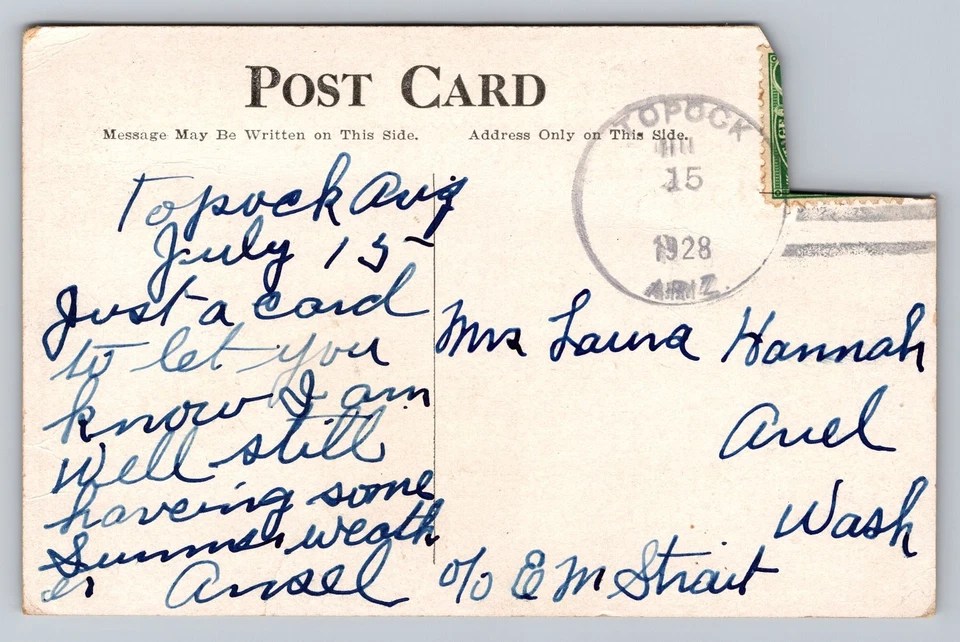 POST CARD
Message May Be Written on This Side.
Address Only on This Side.
TOPOCK
15
1928
ARIZ.
Topock Ariz
July 15
Just a card
to let you
know I am
Well still
haveing some
Summer weath
er Ansel
Mrs Laura Hannah
Ariel
Wash
c/o E M Strait